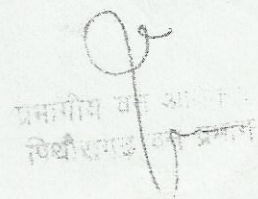 प्रभागीय वन
पिथौरागढ़ वन प्रभाग